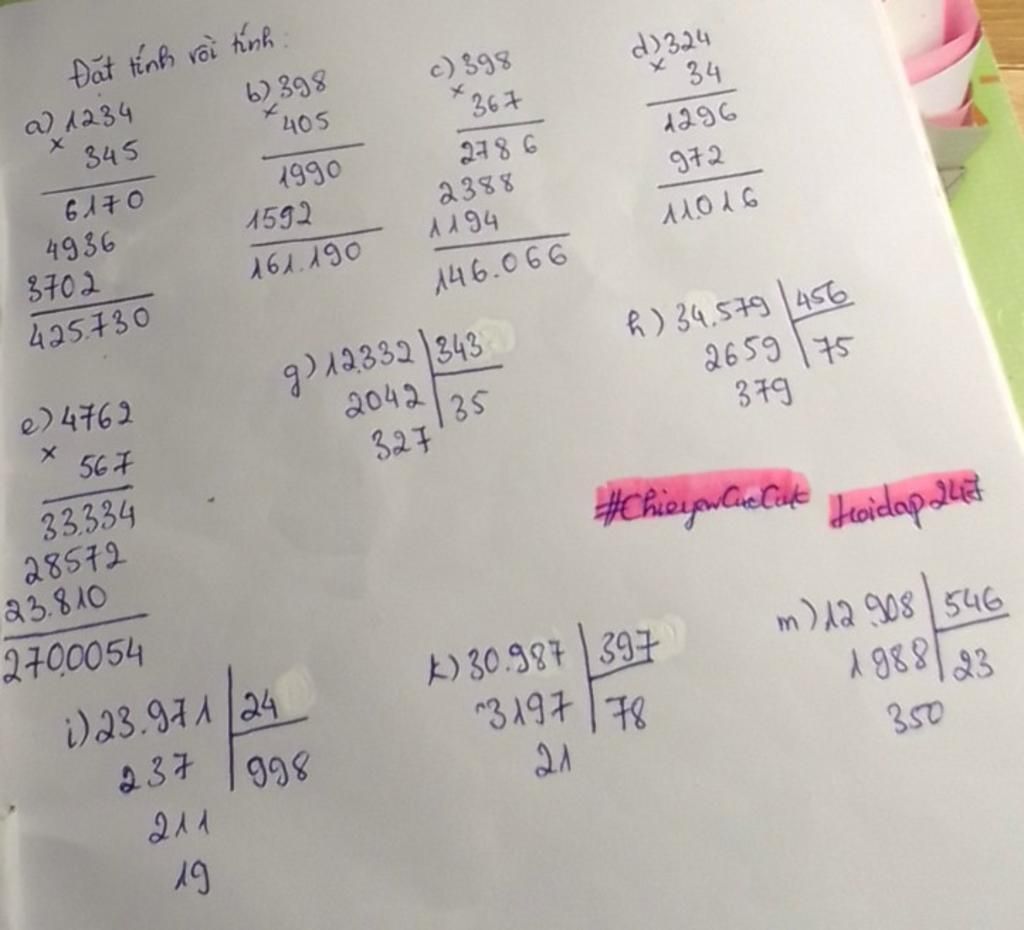 Đặt tính rồi tính:
a) 1234
× 345
6170
4936
3702
425.730
b) 398
× 405
1990
1592
161.190
c) 398
× 367
2786
2388
1194
146.066
d) 324
× 34
1296
972
11.016
e) 4762
× 567
33.334
28572
23.810
270.0054
g) 12.332 343
2042 35
327
h) 34.579 456
2659 75
379
#ChieyewCucCuk hoidap247
i) 23.971 24
237 998
211
19
k) 30.987 397
3197 78
21
m) 12.908 546
1988 23
350